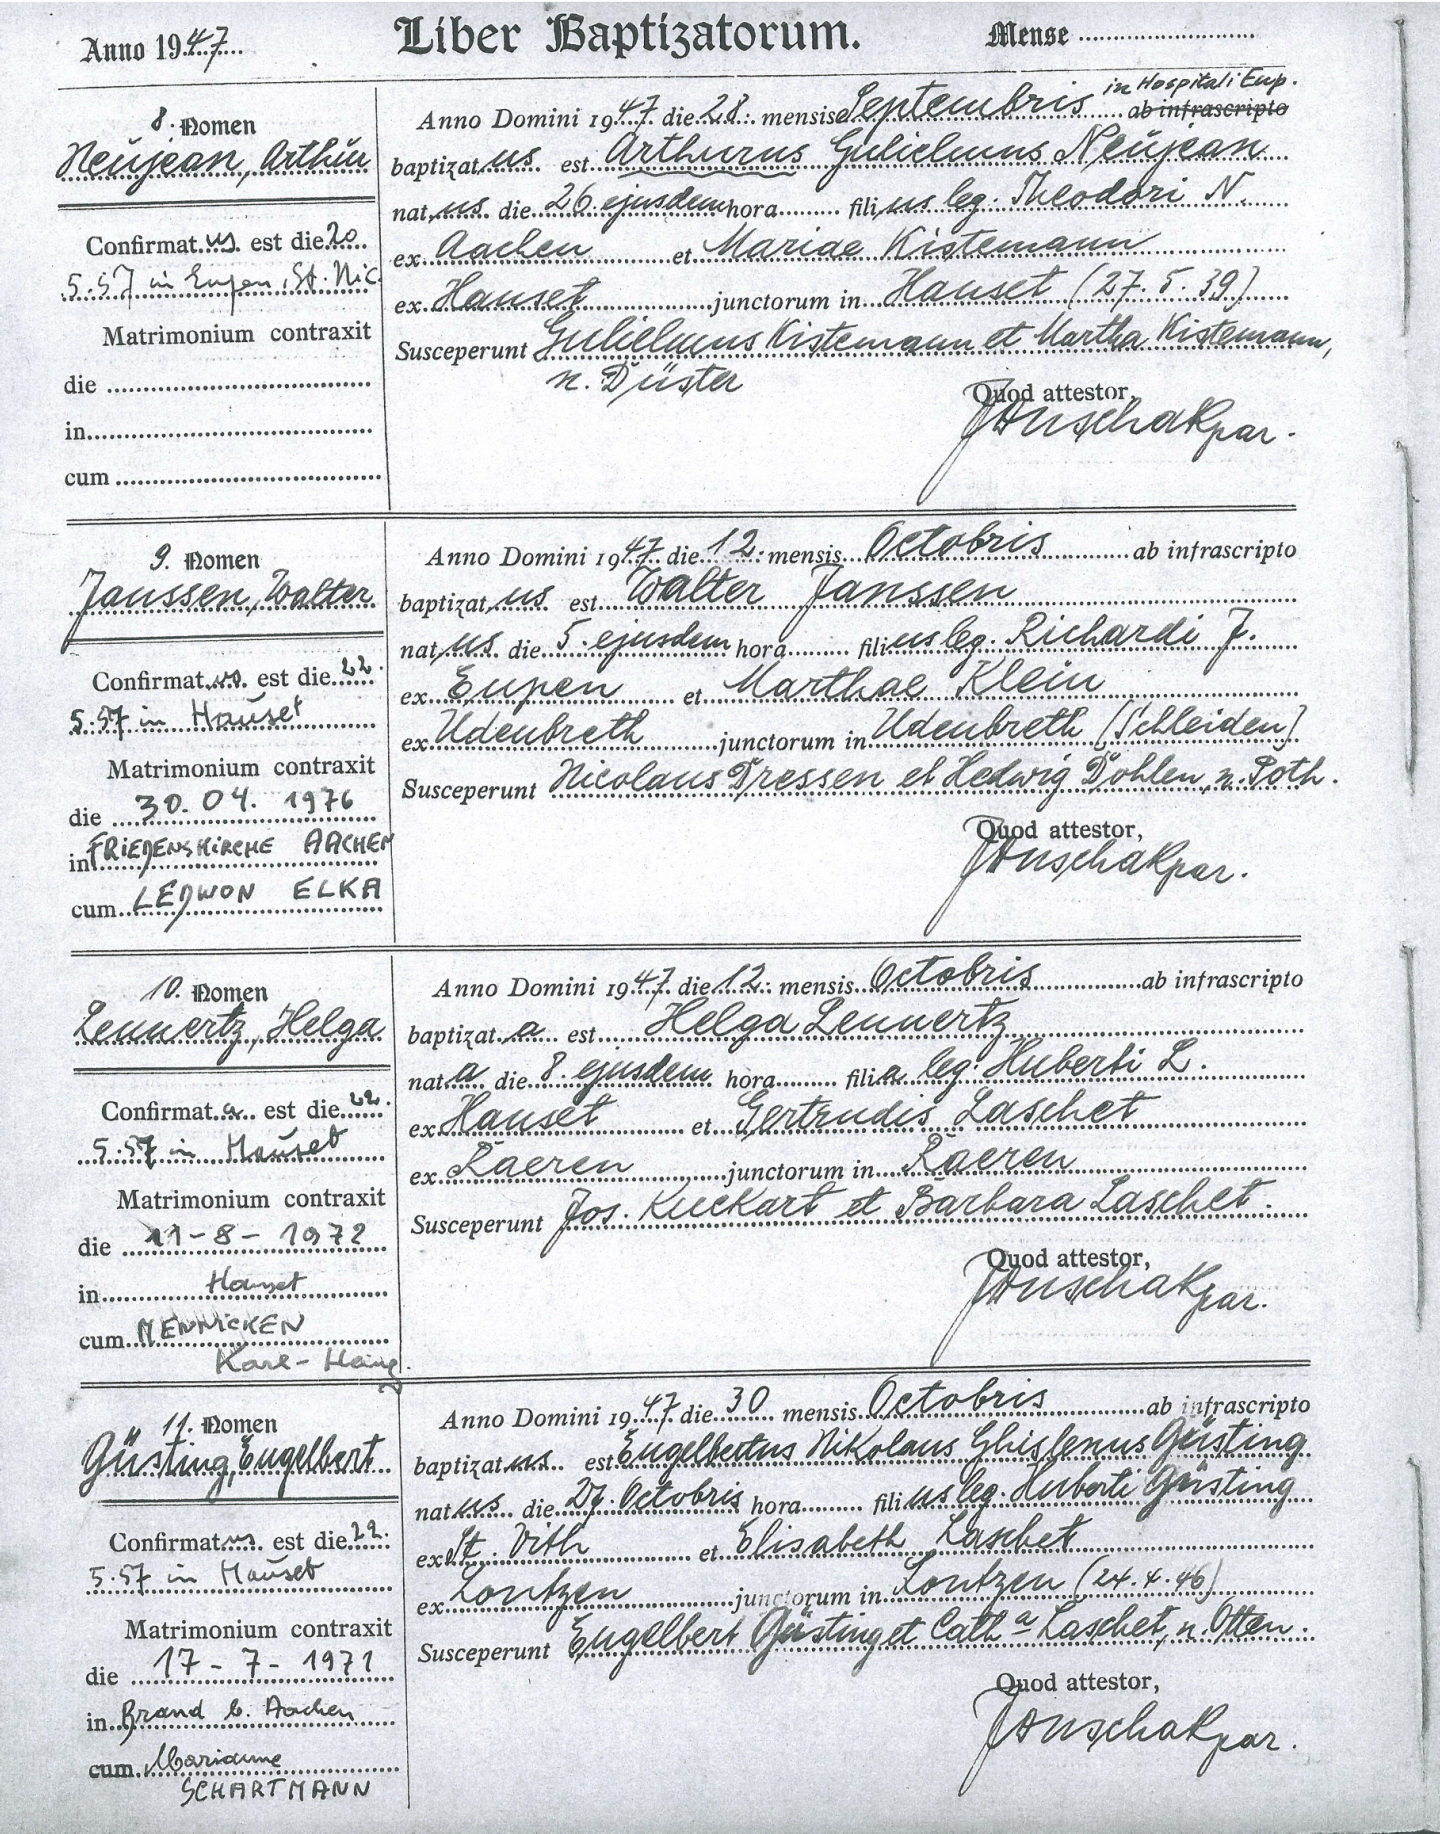 Anno 1947 Liber Baptizatorum. Mense
8. Nomen
Neujean, Arthur
Confirmatus est die 20
5.57 in Eupen, St. Nic.
Matrimonium contraxit
die
in
cum
in Hospitali Eup.
Anno Domini 1947 die 28. mensis Septembris ab infrascripto
baptizatus est Arthurus Gulielmus Neujean
natus die 26. ejusdem hora filius leg. Theodori N.
ex Aachen et Mariae Kistemann
ex Hauset junctorum in Hauset (27.5.39)
Susceperunt Gulielmus Kistemann et Martha Kistemann,
n. Düster
Quod attestor,
par.
9. Nomen
Janssen, Walter
Confirmatus est die 22.
5.57 in Hauset
Matrimonium contraxit
die 30.04.1976
in FRIEDENSKIRCHE AACHEN
cum LEDWON ELKA
Anno Domini 1947 die 12. mensis Octobris ab infrascripto
baptizatus est Walter Janssen
natus die 5. ejusdem hora filius leg. Richardi J.
ex Eupen et Marthae Klein
ex Udenbreth junctorum in Udenbreth (Schleiden)
Susceperunt Nicolaus Dressen et Hedwig Dohlen, n. Poth.
Quod attestor,
par.
10. Nomen
Lennertz, Helga
Confirmata est die 22.
5.57 in Hauset
Matrimonium contraxit
die 11-8-1972
in Hauset
cum MENNICKEN
Karl-Heinz
Anno Domini 1947 die 12. mensis Octobris ab infrascripto
baptizata est Helga Lennertz
nata die 8. ejusdem hora filia leg. Huberti L.
ex Hauset et Gertrudis Laschet
ex Raeren junctorum in Raeren
Susceperunt Jos. Kuckart et Barbara Laschet.
Quod attestor,
par.
11. Nomen
Güsting, Engelbert
Confirmatus est die 22.
5.57 in Hauset
Matrimonium contraxit
die 17-7-1971
in Brand b. Aachen
cum Marianne
SCHARTMANN
Anno Domini 1947 die 30 mensis Octobris ab infrascripto
baptizatus est Engelbertus Nikolaus Ghislenus Güsting
natus die 27. Octobris hora filius leg. Huberti Güsting
ex St. Vith et Elisabeth Laschet
ex Lontzen junctorum in Lontzen (24.4.46)
Susceperunt Engelbert Güsting et Cath^a Laschet, n. Otten.
Quod attestor,
par.